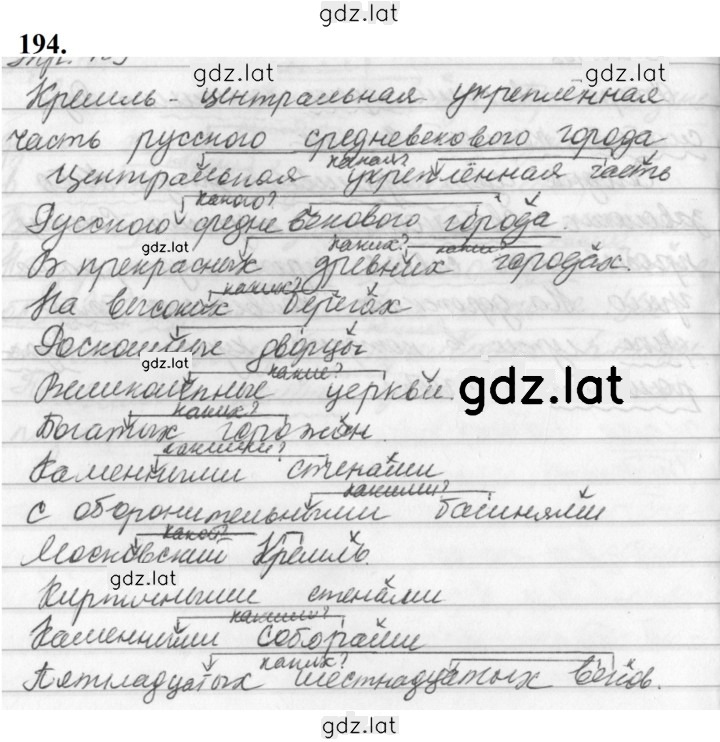 gdz.lat
194.
gdz.lat
gdz.lat
Кремль - центральная укреплённая
часть русского средневекового города
какая?
Центральная укреплённая часть
какого?
Русского средневекового города.
gdz.lat
каких? каких?
В прекрасных древних городах.
каких?
На высоких берегах
Роскошные дворцы
gdz.lat
какие?
Великолепные церкви.
gdz.lat
каких?
Богатых горожан.
какими?
Каменными стенами
какими?
с оборонительными башнями
какой?
Московский Кремль.
gdz.lat
Кирпичными стенами
какими?
Каменными соборами
каких?
Пятнадцатых шестнадцатых веков.
gdz.lat